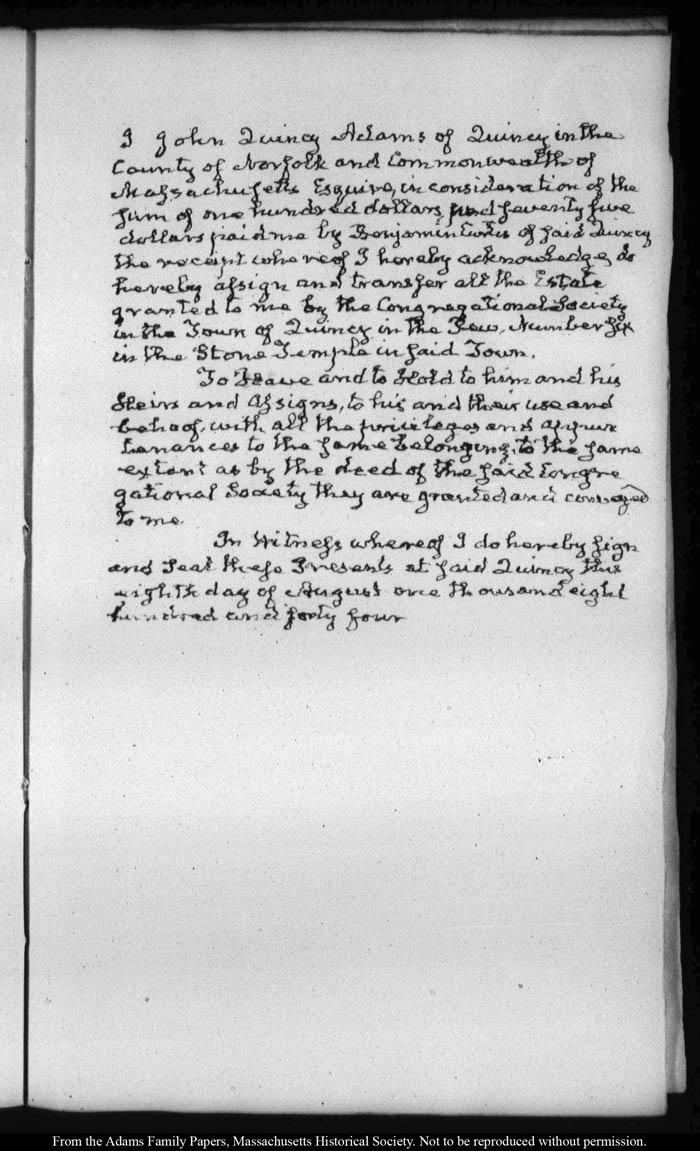 I John Quincy Adams of Quincy in the
County of Norfolk and Commonwealth of
Massachusetts Esquire, in consideration of the
sum of one hundred dollars and seventy five
dollars paid me by Benjamin of said Quincy
the receipt whereof I hereby acknowledge, do
hereby assign and transfer all the Estate
granted to me by the Congregational Society
in the Town of Quincy in the Pew, Number six
in the Stone Temple in said Town.
To Have and to Hold to him and his
Heirs and Assigns, to his and their use and
behoof, with all the privileges and appur
tenances to the same belonging, to the same
extent as by the deed of the said Congre
gational Society they are granted and conveyed
to me.
In Witness whereof I do hereby sign
and seal these Presents at said Quincy this
eighth day of August one thousand eight
hundred and forty four
From the Adams Family Papers, Massachusetts Historical Society. Not to be reproduced without permission.